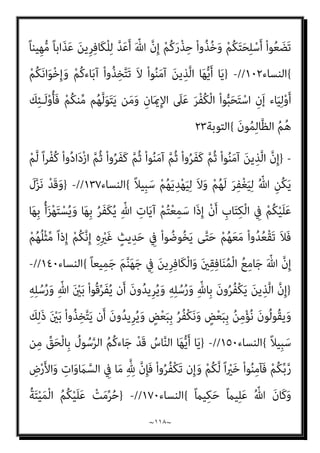 تَضَعُواْ أَسْلِحَتَكُمْ وَخُذُواْ حِذْرَكُمْ إِنَّ اللّهَ أَعَدَّ لِلْكَافِرِينَ عَذَاباً مُّهِيناً
{النساء١٠٢//- {يَا أَيُّهَا الَّذِينَ آمَنُواْ لاَ تَتَّخِذُواْ آبَاءكُمْ وَإِخْوَانَكُمْ
أَوْلِيَاء إَنِ اسْتَحَبُّواْ الْكُفْرَ عَلَى الإِيمَانِ وَمَن يَتَوَلَّهُم مِّنكُمْ فَأُوْلَـئِكَ
هُمُ الظَّالِمُونَ {التوبة٢٣
- {إِنَّ الَّذِينَ آمَنُواْ ثُمَّ كَفَرُواْ ثُمَّ آمَنُواْ ثُمَّ كَفَرُواْ ثُمَّ ازْدَادُواْ كُفْراً لَّمْ
يَكُنِ اللّهُ لِيَغْفِرَ لَهُمْ وَلاَ لِيَهْدِيَهُمْ سَبِيلاً {النساء١٣٧//- {وَقَدْ نَزَّلَ
عَلَيْكُمْ فِي الْكِتَابِ أَنْ إِذَا سَمِعْتُمْ آيَاتِ اللّهِ يُكَفَرُ بِهَا وَيُسْتَهْزَأُ بِهَا
فَلاَ تَقْعُدُواْ مَعَهُمْ حَتَّى يَخُوضُواْ فِي حَدِيثٍ غَيْرِهِ إِنَّكُمْ إِذاً مِّثْلُهُمْ
إِنَّ اللّهَ جَامِعُ الْمُنَافِقِينَ وَالْكَافِرِينَ فِي جَهَنَّمَ جَمِيعاً {النساء١٤٠//-
{إِنَّ الَّذِينَ يَكْفُرُونَ بِاللّهِ وَرُسُلِهِ وَيُرِيدُونَ أَن يُفَرِّقُواْ بَيْنَ اللّهِ وَرُسُلِهِ
وَيقُولُونَ نُؤْمِنُ بِبَعْضٍ وَنَكْفُرُ بِبَعْضٍ وَيُرِيدُونَ أَن يَتَّخِذُواْ بَيْنَ ذَلِكَ
سَبِيلاً {النساء١٥٠//- {يَا أَيُّهَا النَّاسُ قَدْ جَاءكُمُ الرَّسُولُ بِالْحَقِّ مِن
رَّبِّكُمْ فَآمِنُواْ خَيْراً لَّكُمْ وَإِن تَكْفُرُواْ فَإِنَّ لِلَّهِ مَا فِي السَّمَاوَاتِ وَالأَرْضِ
وَكَانَ اللّهُ عَلِيماً حَكِيماً {النساء١٧٠//- {حُرِّمَتْ عَلَيْكُمُ الْمَيْتَةُ
~١١٨~